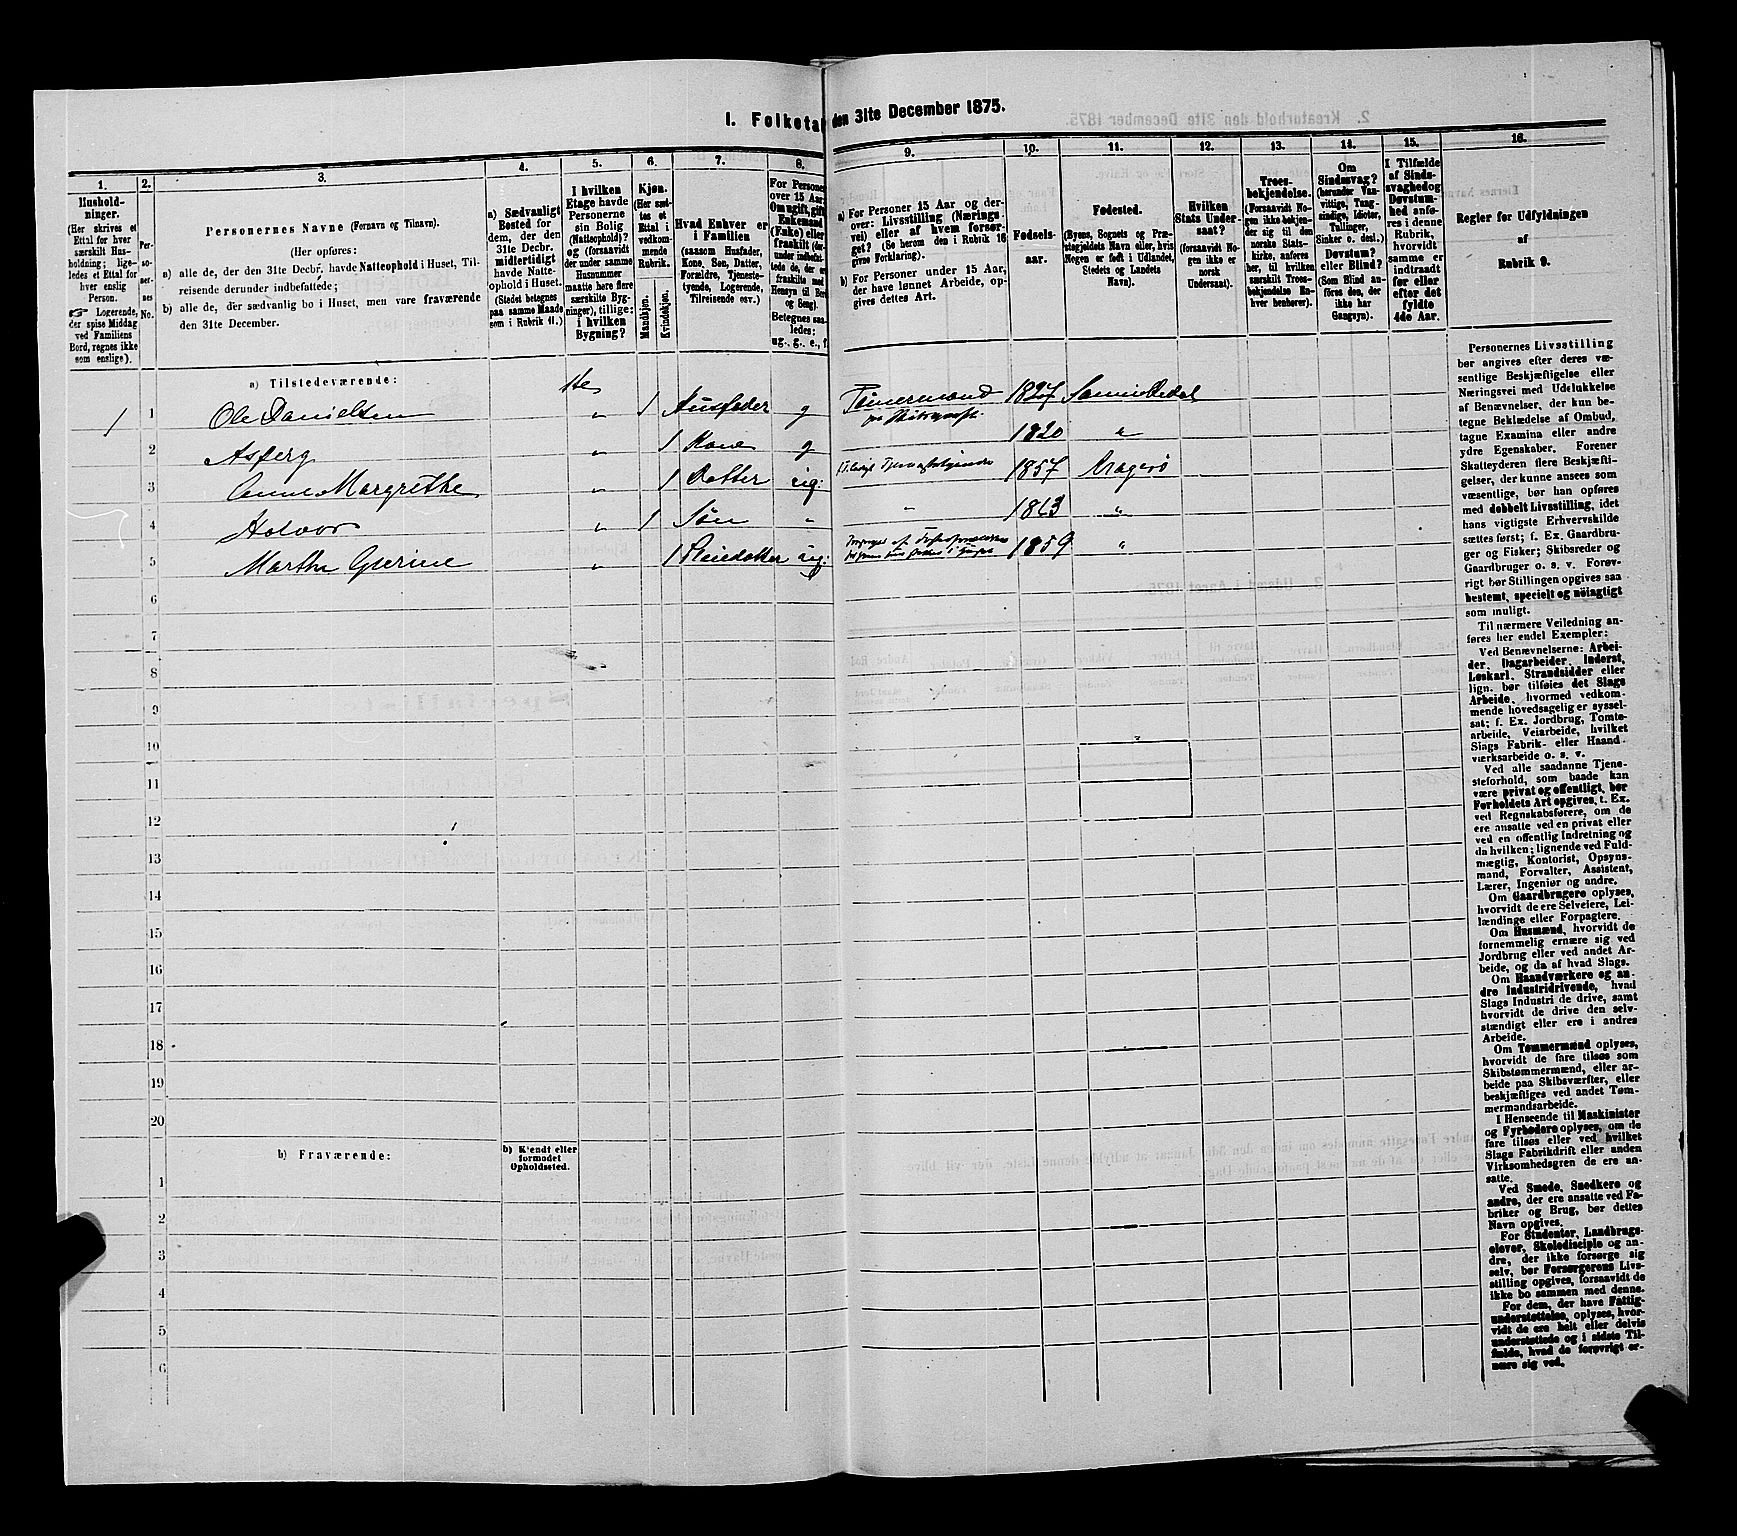 I. Folketal den 31te December 1875.
1.
2.
3.
4.
5.
6.
7.
8.
9.
10.
11.
12.
13.
14.
15.
16.
Hushold-
ninger.
(Her skrives et
Ettal for hver
særskilt Hus-
holdning; lige-
ledes et Ettal for
hver enslig
Person.
☞ Logerende,
der spise Middag
ved Familiens
Bord, regnes ikke
som enslige).
Per-
so-
ner-
nes
No.
Personernes Navne (Fornavn og Tilnavn).
(Her opføres:
a) alle de, der den 31te Decbr. havde Natteophold i Huset, Til-
reisende derunder indbefattede;
b) alle de, der sædvanlig bo i Huset, men vare fraværende
den 31te December.
a) Sædvanligt
Bosted for
dem, der den
31te Decbr.
midlertidigt
havde Natte-
ophold i Huset.
(Stedet betegnes
paa samme Maade
som i Rubrik 11.)
I hvilken
Etage havde
Personerne
sin Bolig
(Natteophold)?
og (forsaavidt
der under samme
Husnummer
maatte høre flere
særskilte Byg-
ninger), tillige:
i hvilken
Bygning?
Kjøn.
(Her sæt-
tes et
Ettal i
vedkom-
mende
Rubrik.
Mandkjøn.
Kvindekjøn.
Hvad Enhver er
i Familien
(saasom Husfader,
Kone, Søn, Datter,
Forældre, Tjeneste-
tyende, Logerende,
Tilreisende osv.)
For Personer
over 15 Aar:
Om ugift, gift,
Enkemand
(Enke) eller
fraskilt (der-
under indbefat-
tede de, der ere
fraskilte med
Hensyn til Bord
og Seng).
Betegnes saa-
ledes:
ug., g., e., f.
a) For Personer 15 Aar og der-
over: Livsstilling (Nærings-
vei) eller af hvem forsør-
get? (Se herom den i Rubrik 16
givne Forklaring).
b) For Personer under 15 Aar,
der have lønnet Arbeide, op-
gives dettes Art.
Fødsels-
aar.
Fødested.
(Byens, Sognets og Præ-
stegjeldets Navn eller, hvis
Nogen er født i Udlandet,
Stedets og Landets
Navn).
Hvilken
Stats Under-
saat?
(forsaavidt No-
gen ikke er
norsk
Undersaat).
Troes-
bekjendelse.
(Forsaavidt No-
gen ikke bekjen-
der sig til den
norske Stats-
kirke, anføres
her, til hvilken
særskilt Troes-
bekjendelse Ha-
ver henhører).
Om
Sindssvag?
(herunder Van-
vittige, Tung-
sindige, Idioter,
Tullinger,
Sinker o. desl.)
Døvstum?
eller Blind?
(Som Blind an-
føres den, der
ikke har
Gangsyn).
I Tilfælde
af Sinds-
svaghed og
Døvstum-
hed anfø-
res i denne
Rubrik,
hvorvidt
samme er
indtraadt
før eller
efter det
fyldte
4de Aar.
Regler for Udfyldningen
af
Rubrik 9.
a) Tilstedeværende:
1te
1 1 Ole Danielsen " 1 Husfader g Tømermand 1827 Sannikedal
2 Asberg " 1 Kone g 1820 "
3 Anne Margrethe " 1 Datter ug: 1857 Kragerø
4 Halvor " 1 Søn " " 1863 "
5 Marthe Gurine " 1 Pleiedatter ug: 1859 "
6
7
8
9
10
11
12
13
14
15
16
17
18
19
20
b) Fraværende:
b) Kjendt eller
formodet
Opholdssted.
1
2
3
4
5
6
Personernes Livsstilling
bør angives efter deres væ-
sentlige Beskjæftigelse eller
Næringsvei med Udelukkelse
af Benævnelser, der kun be-
tegne Beklædelse af Ombud,
tagne Examina eller andre
ydre Egenskaber. Forener
Skatteyderen flere Beskjæfti-
gelser, der kunne ansees som
væsentlige, bør han opføres
med dobbelt Livsstilling, idet
hans vigtigste Erhvervskilde
sættes først; f. Ex. Gaardbru-
ger og Fisker; Skibsreder og
Gaardbruger o. s. v. Forøv-
rigt bør Stillingen opgives saa
bestemt, specielt og nøiagtigt
som muligt.
Til nærmere Veiledning an-
føres her endel Exempler:
Ved Benævnelserne: Arbei-
der, Dagarbeider, Inderst,
Løskarl, Strandsidder eller
lign. bør tilføies det Slags
Arbeide, hvormed vedkom-
mende hovedsagelig er syssel-
sat; f. Ex. Jordbrug, Tomte-
arbeide, Veiarbeide, hvilket
Slags Fabrik- eller Haand-
værksarbeide o. s. v.
Ved alle saadanne Tjene-
steforhold, som baade kan
være privat og offentligt, bør
Forholdets Art opgives, t. Ex.
ved Regnskabsførere, om de
ere ansatte ved en privat eller
ved en offentlig Indretning og
da hvilken; lignende ved Fuld-
mægtig, Kontorist, Opsyns-
mand, Forvalter, Assistent,
Lærer, Ingeniør og andre.
Om Gaardbrugere oplyses,
hvorvidt de ere Selveiere, Lei-
lændinge eller Forpagtere.
Om Husmænd, hvorvidt de
fornemmelig ernære sig ved
Jordbrug eller ved andet Ar-
beide, og da af hvad Slags.
Om Haandværkere og an-
dre Industridrivende, hvad
Slags Industri de drive, samt
hvorvidt de drive den selv-
stændigt eller ere i andres
Arbeide.
Om Tømmermænd oplyses,
hvorvidt de fare tilsøs som
Skibstømmermænd, eller ar-
beide paa Skibsværfter, eller
beskjæftiges ved andet Tøm-
mermandsarbeide.
I Henseende til Maskinister
og Fyrbødere oplyses, om de
fare tilsøs eller ved hvilket
Slags Fabrikdrift eller anden
Virksomhedsgren de ere an-
satte.
Ved Smede, Snedkere og
andre, der ere ansatte ved Fa-
briker og Brug, bør dettes
Navn opgives.
For Studenter, Landbrugs-
elever, Skoledisciple og an-
dre, der ikke forsørge sig
selv, bør Forsørgerens Livs-
stilling opgives, forsaavidt de
ikke bo sammen med denne.
For dem, der have Fattig-
understøttelse, oplyses, hvor-
vidt de ere helt eller delvis
understøttede og i sidste Til-
fælde, hvad de forøvrigt er-
nære sig ved.